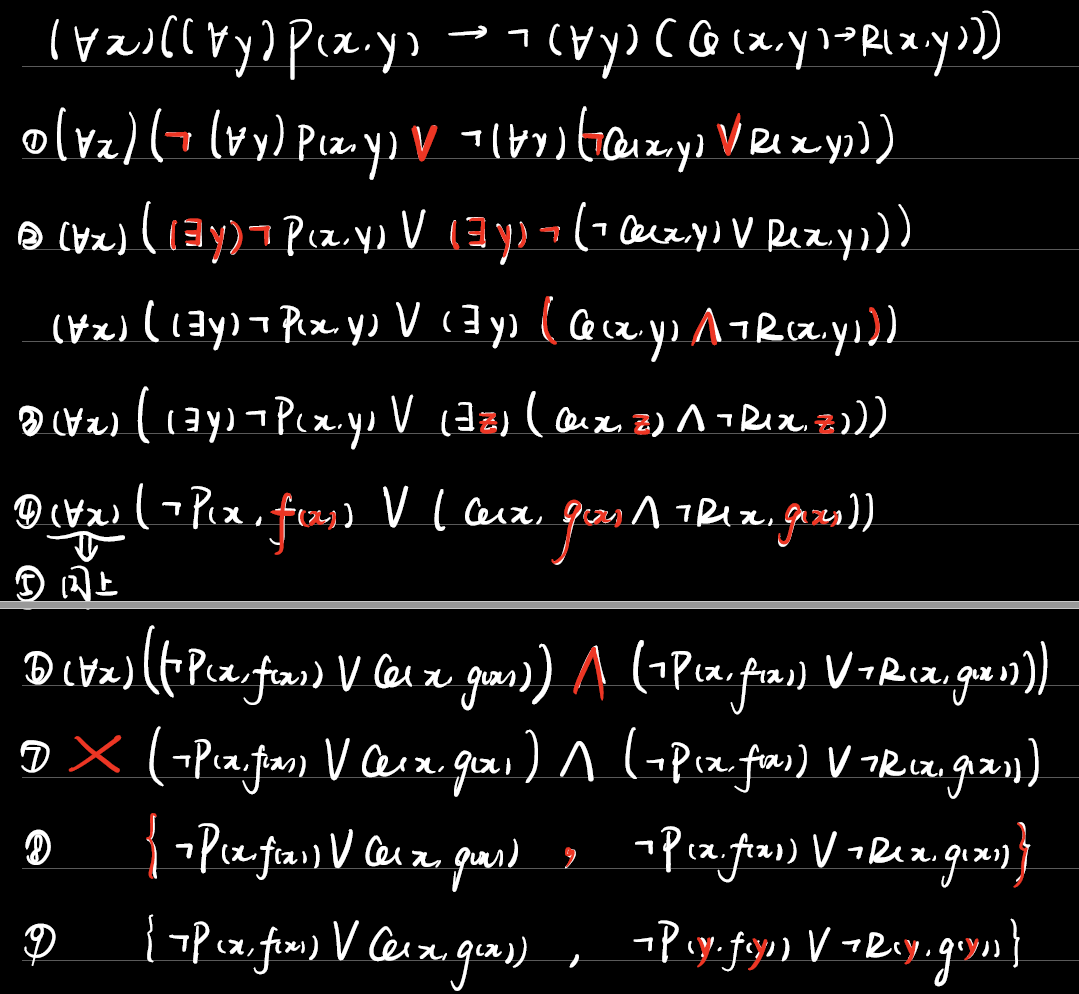 (∀x)((∀y)P(x,y) → ¬(∀y)(Q(x,y)→R(x,y)))
①(∀x)(¬(∀y)P(x,y) ∨ ¬(∀y)(¬Q(x,y) ∨ R(x,y)))
②(∀x)((∃y)¬P(x,y) ∨ (∃y)¬(¬Q(x,y) ∨ R(x,y)))
(∀x)((∃y)¬P(x,y) ∨ (∃y)(Q(x,y) ∧ ¬R(x,y)))
③(∀x)((∃y)¬P(x,y) ∨ (∃z)(Q(x,z) ∧ ¬R(x,z)))
④(∀x)(¬P(x,f(x)) ∨ (Q(x,g(x) ∧ ¬R(x,g(x)))
⇓
⑤ 同上
⑥(∀x)((¬P(x,f(x)) ∨ Q(x g(x))) ∧ (¬P(x,f(x)) ∨ ¬R(x,g(x))))
⑦ × (¬P(x,f(x)) ∨ Q(x,g(x)) ∧ (¬P(x,f(x)) ∨ ¬R(x,g(x)))
⑧ {¬P(x,f(x)) ∨ Q(x,g(x)) , ¬P(x,f(x)) ∨ ¬R(x,g(x))}
⑨ {¬P(x,f(x)) ∨ Q(x,g(x)) , ¬P(y,f(y)) ∨ ¬R(y,g(y))}